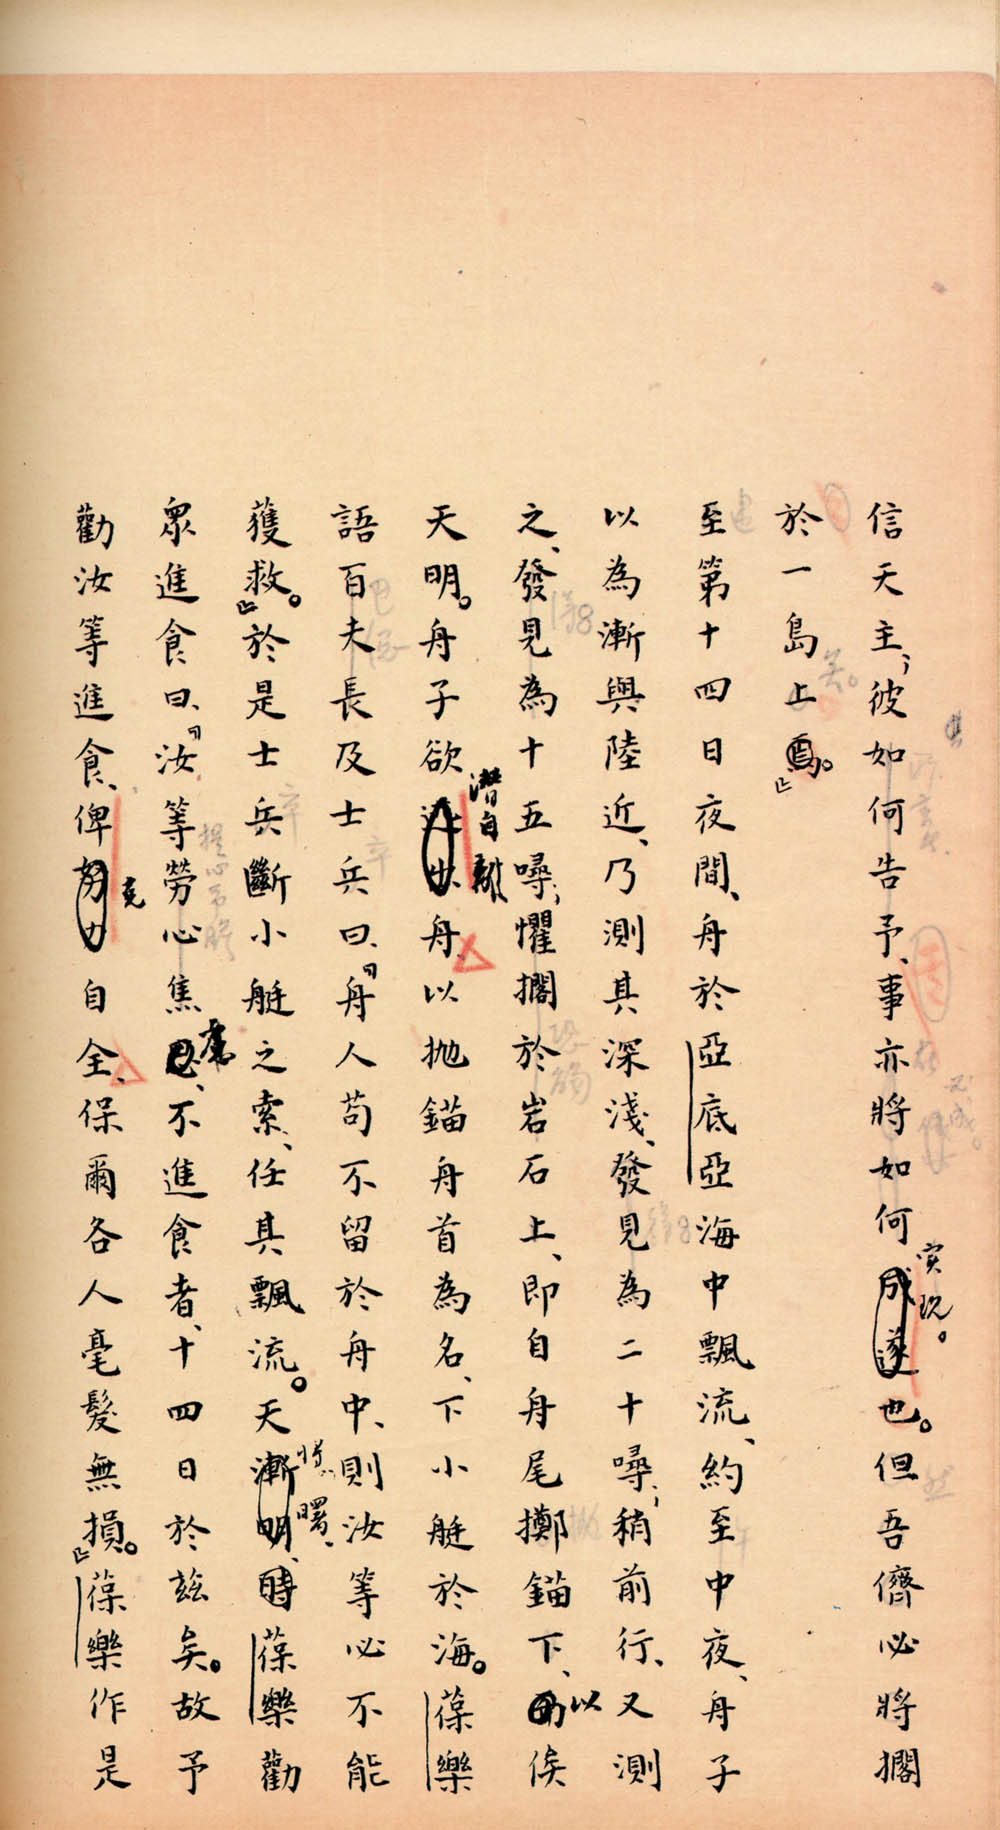 信天主；彼如何告予、事亦將如何成遂實現。也。但吾儕必將擱
於一島上焉。」
至第十四日夜間、舟於亞底亞海中飄流、約至中夜、舟子
以為漸與陸近、乃測其深淺、發見為二十嘼；稍前行、又測
之、發見為十五嘼；懼擱於岩石上、即自舟尾擲錨下、以俟
天明。舟子欲潛自離舟、以拋錨舟首為名、下小艇於海。葆樂
語百夫長及士兵曰、「舟人苟不留於舟中、則汝等必不能
獲救。」於是士兵斷小艇之索、任其飄流。天漸明、將曙、時葆樂勸
眾進食曰、「汝等勞心焦慮、不進食者、十四日於茲矣。故予
勸汝等進食、俾努力克自全、保爾各人毫髮無損。」葆樂作是